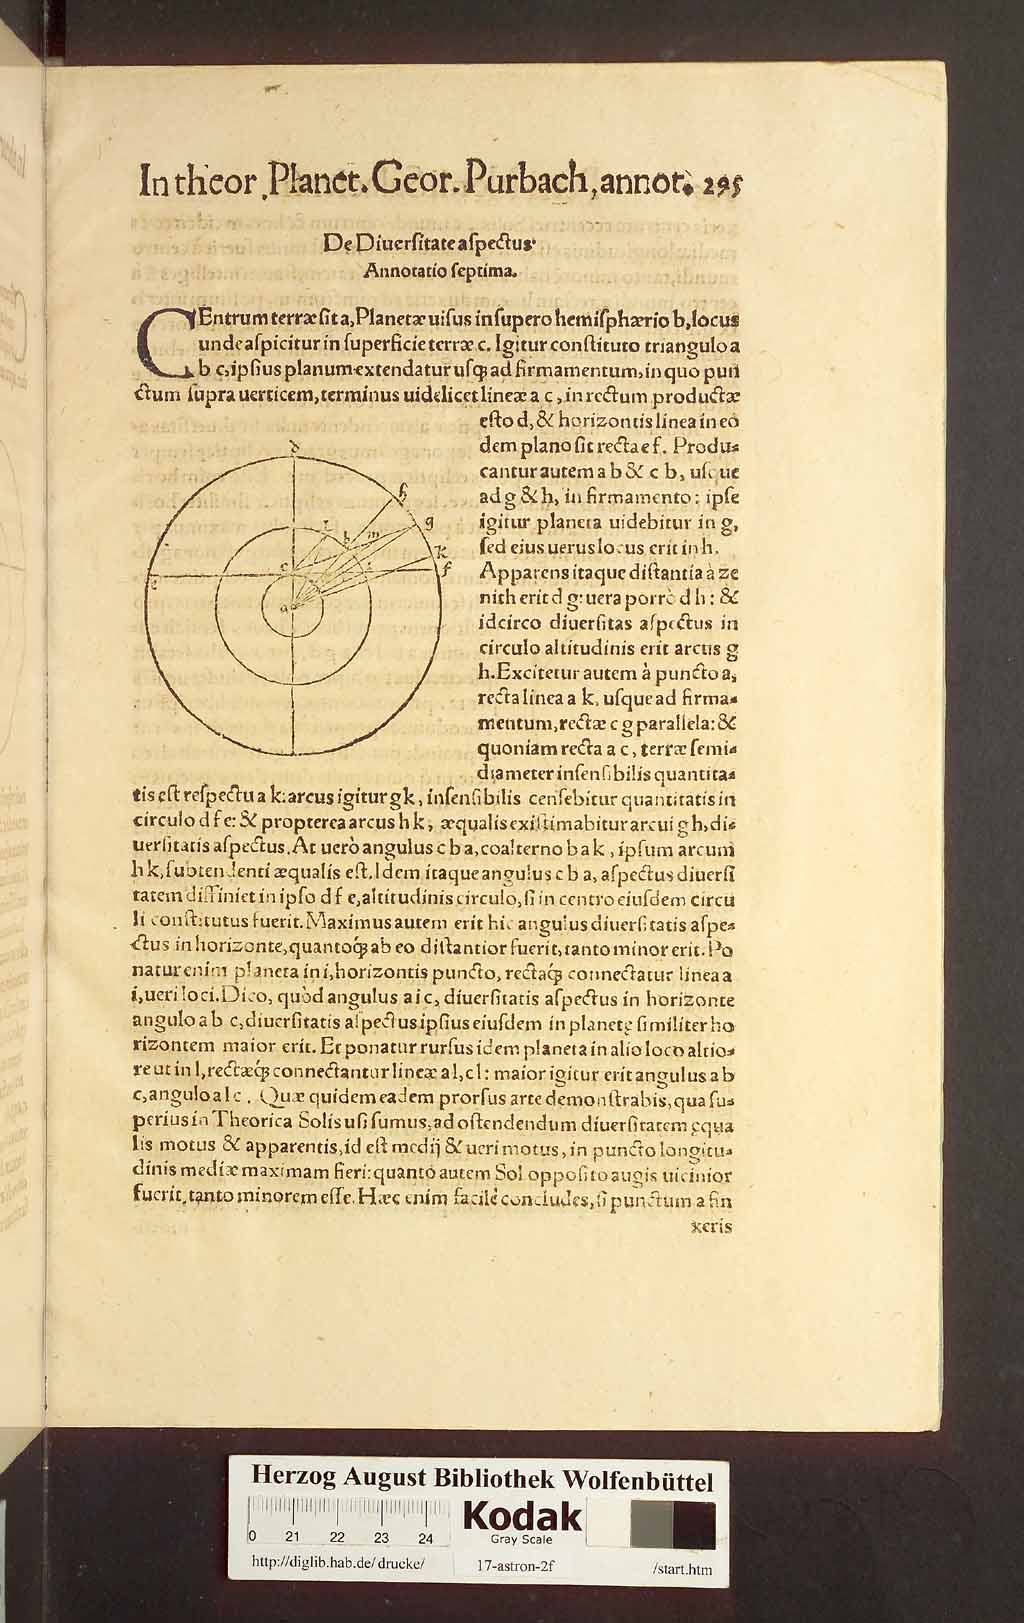 In theor. Planet. Geor. Purbach, annot. 295
De Diuersitate aspectus.
Annotatio septima.
CEntrum terræ sit a, Planetæ uisus in supero hemisphærio b, locus
unde aspicitur in superficie terræ c. Igitur constituto triangulo a
b c, ipsius planum extendatur usq; ad firmamentum, in quo pun
ctum supra uerticem, terminus uidelicet lineæ a c, in rectum productæ
esto d, & horizontis linea in eo
dem plano sit recta e f. Produ-
cantur autem a b & c b, usque
ad g & h, in firmamento: ipse
igitur planeta uidebitur in g,
sed eius uerus locus erit in h.
Apparens itaque distantia à ze
nith erit d g: uera porrò d h: &
idcirco diuersitas aspectus in
circulo altitudinis erit arcus g
h. Excitetur autem à puncto a,
recta linea a k, usque ad firma-
mentum, rectæ c g parallela: &
quoniam recta a c, terræ semi-
diameter insensibilis quantita-
tis est respectu a k: arcus igitur g k, insensibilis censebitur quantitatis in
circulo d f e: & propterea arcus h k, æqualis existimabitur arcui g h, di-
uersitatis aspectus. At uerò angulus c b a, coalterno b a k, ipsum arcum
h k, subtendenti æqualis est. Idem itaque angulus c b a, aspectus diuersi
tatem diffiniet in ipso d f e, altitudinis circulo, si in centro eiusdem circu
li constitutus fuerit. Maximus autem erit hic angulus diuersitatis aspe-
ctus in horizonte, quantoq; ab eo distantior fuerit, tanto minor erit. Po
natur enim planeta in i, horizontis puncto, rectaq; connectatur linea a
i, ueri loci. Dico, quòd angulus a i c, diuersitatis aspectus in horizonte
angulo a b c, diuersitatis aspectus ipsius eiusdem in planetę similiter ho
rizontem maior erit. Et ponatur rursus idem planeta in alio loco altio-
re ut in l, rectæq; connectantur lineæ a l, c l: maior igitur erit angulus a b
c, angulo a l c. Quæ quidem eadem prorsus arte demonstrabis, qua su-
perius in Theorica Solis usi sumus, ad ostendendum diuersitatem ęqua
lis motus & apparentis, id est medij & ueri motus, in puncto longitu-
dinis mediæ maximam fieri: quanto autem Sol opposito augis uicinior
fuerit, tanto minorem esse. Hæc enim facilè concludes, si punctum a fin
xeris
d
h
g
k
f
l
b
m
i
c
e
a
Herzog August Bibliothek Wolfenbüttel
0 21 22 23 24
Kodak
Gray Scale
http://diglib.hab.de/drucke/ 17-astron-2f /start.htm